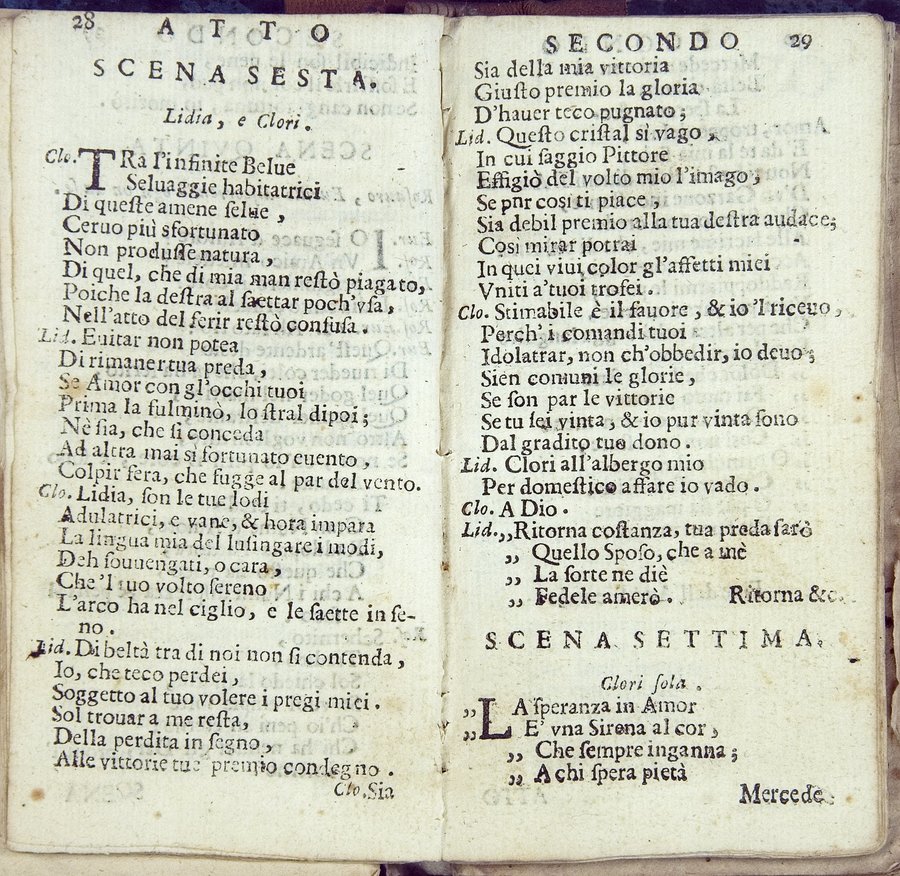 28
ATTO
SCENA SESTA.
Lidia, e Clori.
Clo. TRa l'infinite Belue
Seluaggie habitatrici
Di queste amene selue,
Ceruo più sfortunato
Non produsse natura,
Di quel, che di mia man restò piagato,
Poiche la destra al saettar poch'vsa,
Nell'atto del ferir restò confusa.
Lid. Euitar non potea
Di rimaner tua preda,
Se Amor con gl'occhi tuoi
Prima la fulminò, lo stral dipoi;
Nè sia, che si conceda
Ad altra mai si fortunato euento,
Colpir fera, che fugge al par del vento.
Clo. Lidia, son le tue lodi
Adulatrici, e vane, & hora impara
La lingua mia del lusingare i modi,
Deh souuengati, o cara,
Che 'l tuo volto sereno
L'arco ha nel ciglio, e le saette in se-
no.
Lid. Di beltà tra di noi non si contenda,
Io, che teco perdei,
Soggetto al tuo volere i pregi miei.
Sol trouar a me resta,
Della perdita in segno,
Alle vittorie tue premio condegno.
Clo. Sia
SECONDO
29
Sia della mia vittoria
Giusto premio la gloria
D'hauer teco pugnato;
Lid. Questo cristal si vago,
In cui saggio Pittore
Effigiò del volto mio l'imago,
Se pur cosi ti piace,
Sia debil premio alla tua destra audace;
Cosi mirar potrai
In quei viui color gl'affetti miei
Vniti a'tuoi trofei.
Clo. Stimabile è il fauore, & io 'l riceuo,
Perch' i comandi tuoi
Idolatrar, non ch'obbedir, io deuo;
Sien comuni le glorie,
Se son par le vittorie
Se tu sei vinta, & io pur vinta sono
Dal gradito tuo dono.
Lid. Clori all'albergo mio
Per domestico affare io vado.
Clo. A Dio.
Lid. ,,Ritorna costanza, tua preda sarò
,, Quello Sposo, che a mè
,, La sorte ne diè
,, Fedele amerò. Ritorna &c.
SCENA SETTIMA.
Clori sola.
,, LA speranza in Amor
,, E' vna Sirena al cor,
,, Che sempre inganna;
,, A chi spera pietà
Mercede